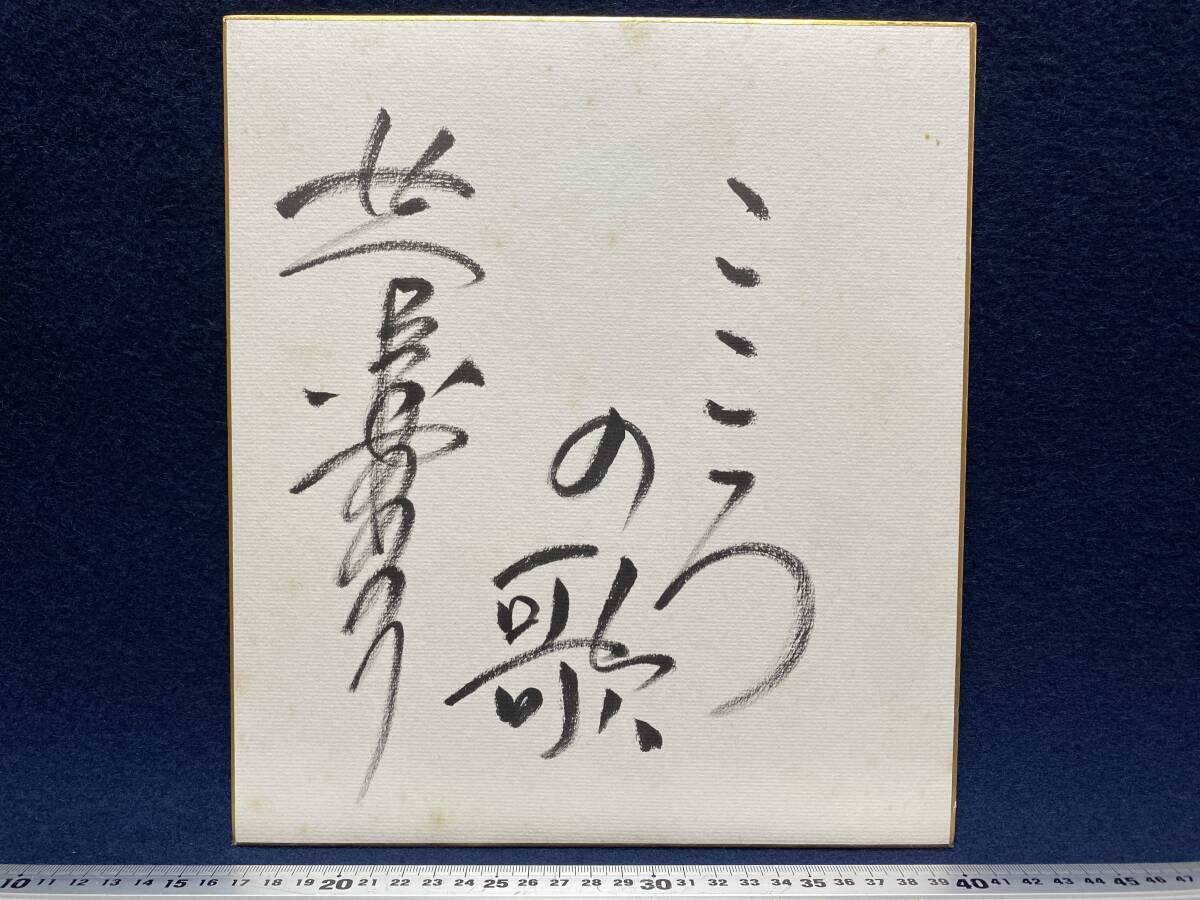 こころ
の歌
10 11 12 13 14 15 16 17 18 19 20 21 22 23 24 25 26 27 28 29 30 31 32 33 34 35 36 37 38 39 40 41 42 43 44 45 46 47